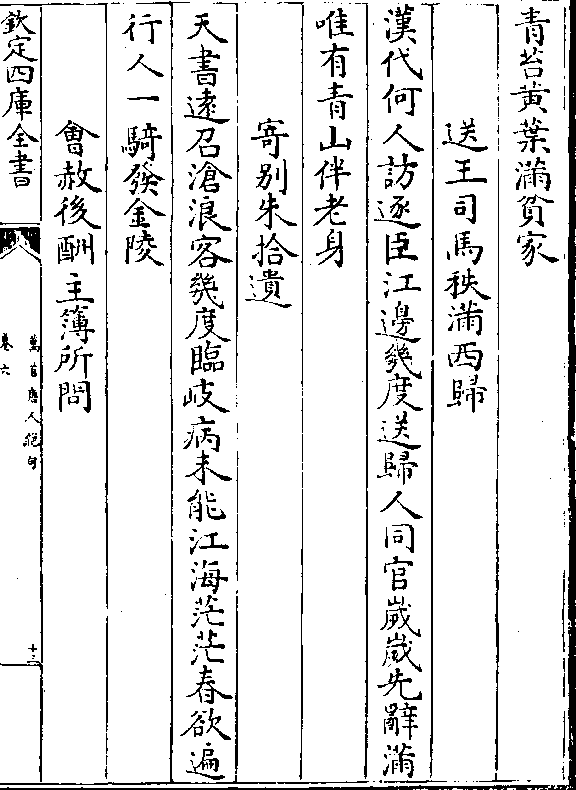 青苔黄葉滿貧家
送王司馬秩滿西歸
漢代何人訪逐臣江邊幾度送歸人同官歲歲先辭滿
唯有青山伴老身
寄别朱拾遺
天書遠召滄浪客幾度臨岐病未能江海茫茫春欲遍
行人一騎發金陵
會赦後酬主簿所問
欽定四庫全書
萬首唐人絕句
卷六
十三